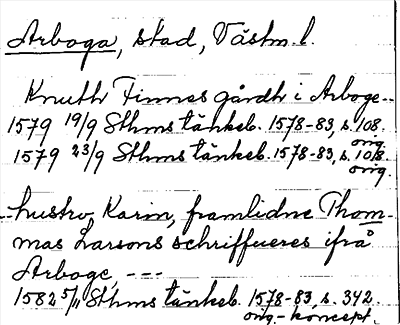 Arboga, stad, Västm. l.
Knuth Finnes gårdh i Arboge --
1579 19/9 Sthms tänkeb. 1578-83, s. 108.
orig.
1579 23/9 Sthms tänkeb. 1578-83, s. 108.
orig.
-- hustro Karin, framlidne Thom-
mas Larsons schriffueres ifrå
Arboge, ---
1582 5/11 Sthms tänkeb. 1578-83 s. 342.
orig.-koncept.